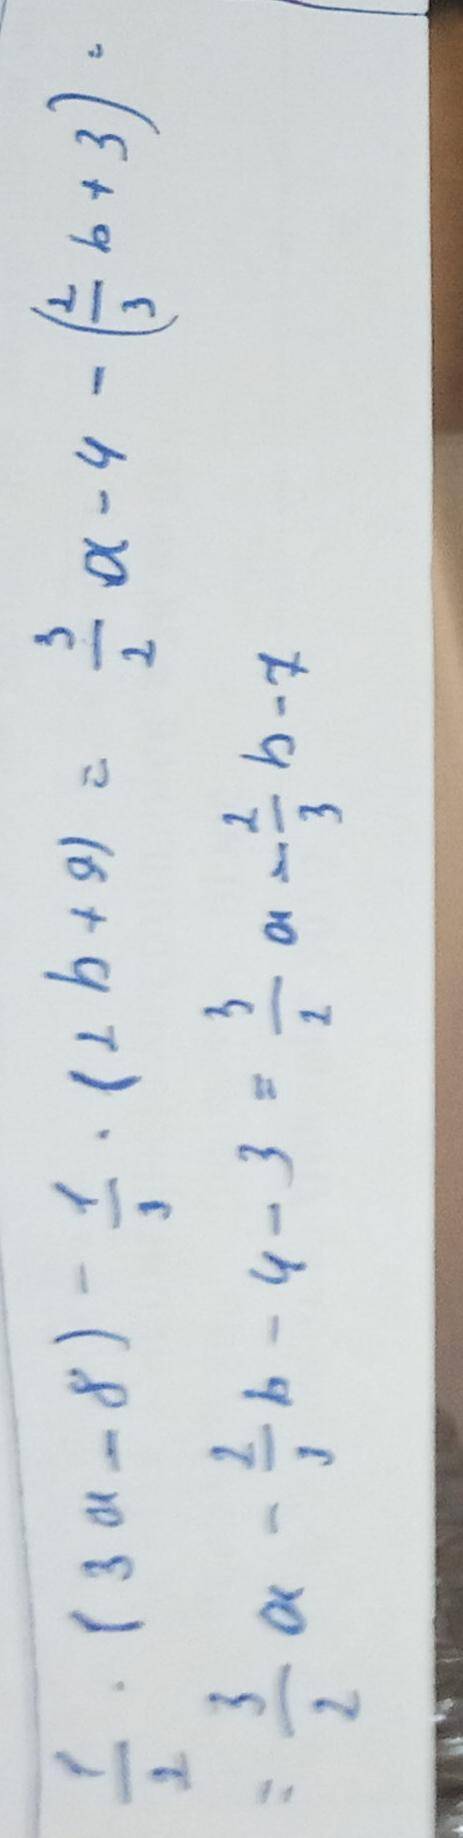 1/2 · (3a - 8) - 1/3 · (2b + 9) = 3/2 a - 4 - (2/3 b + 3) =
= 3/2 a - 2/3 b - 4 - 3 = 3/2 a - 2/3 b - 7